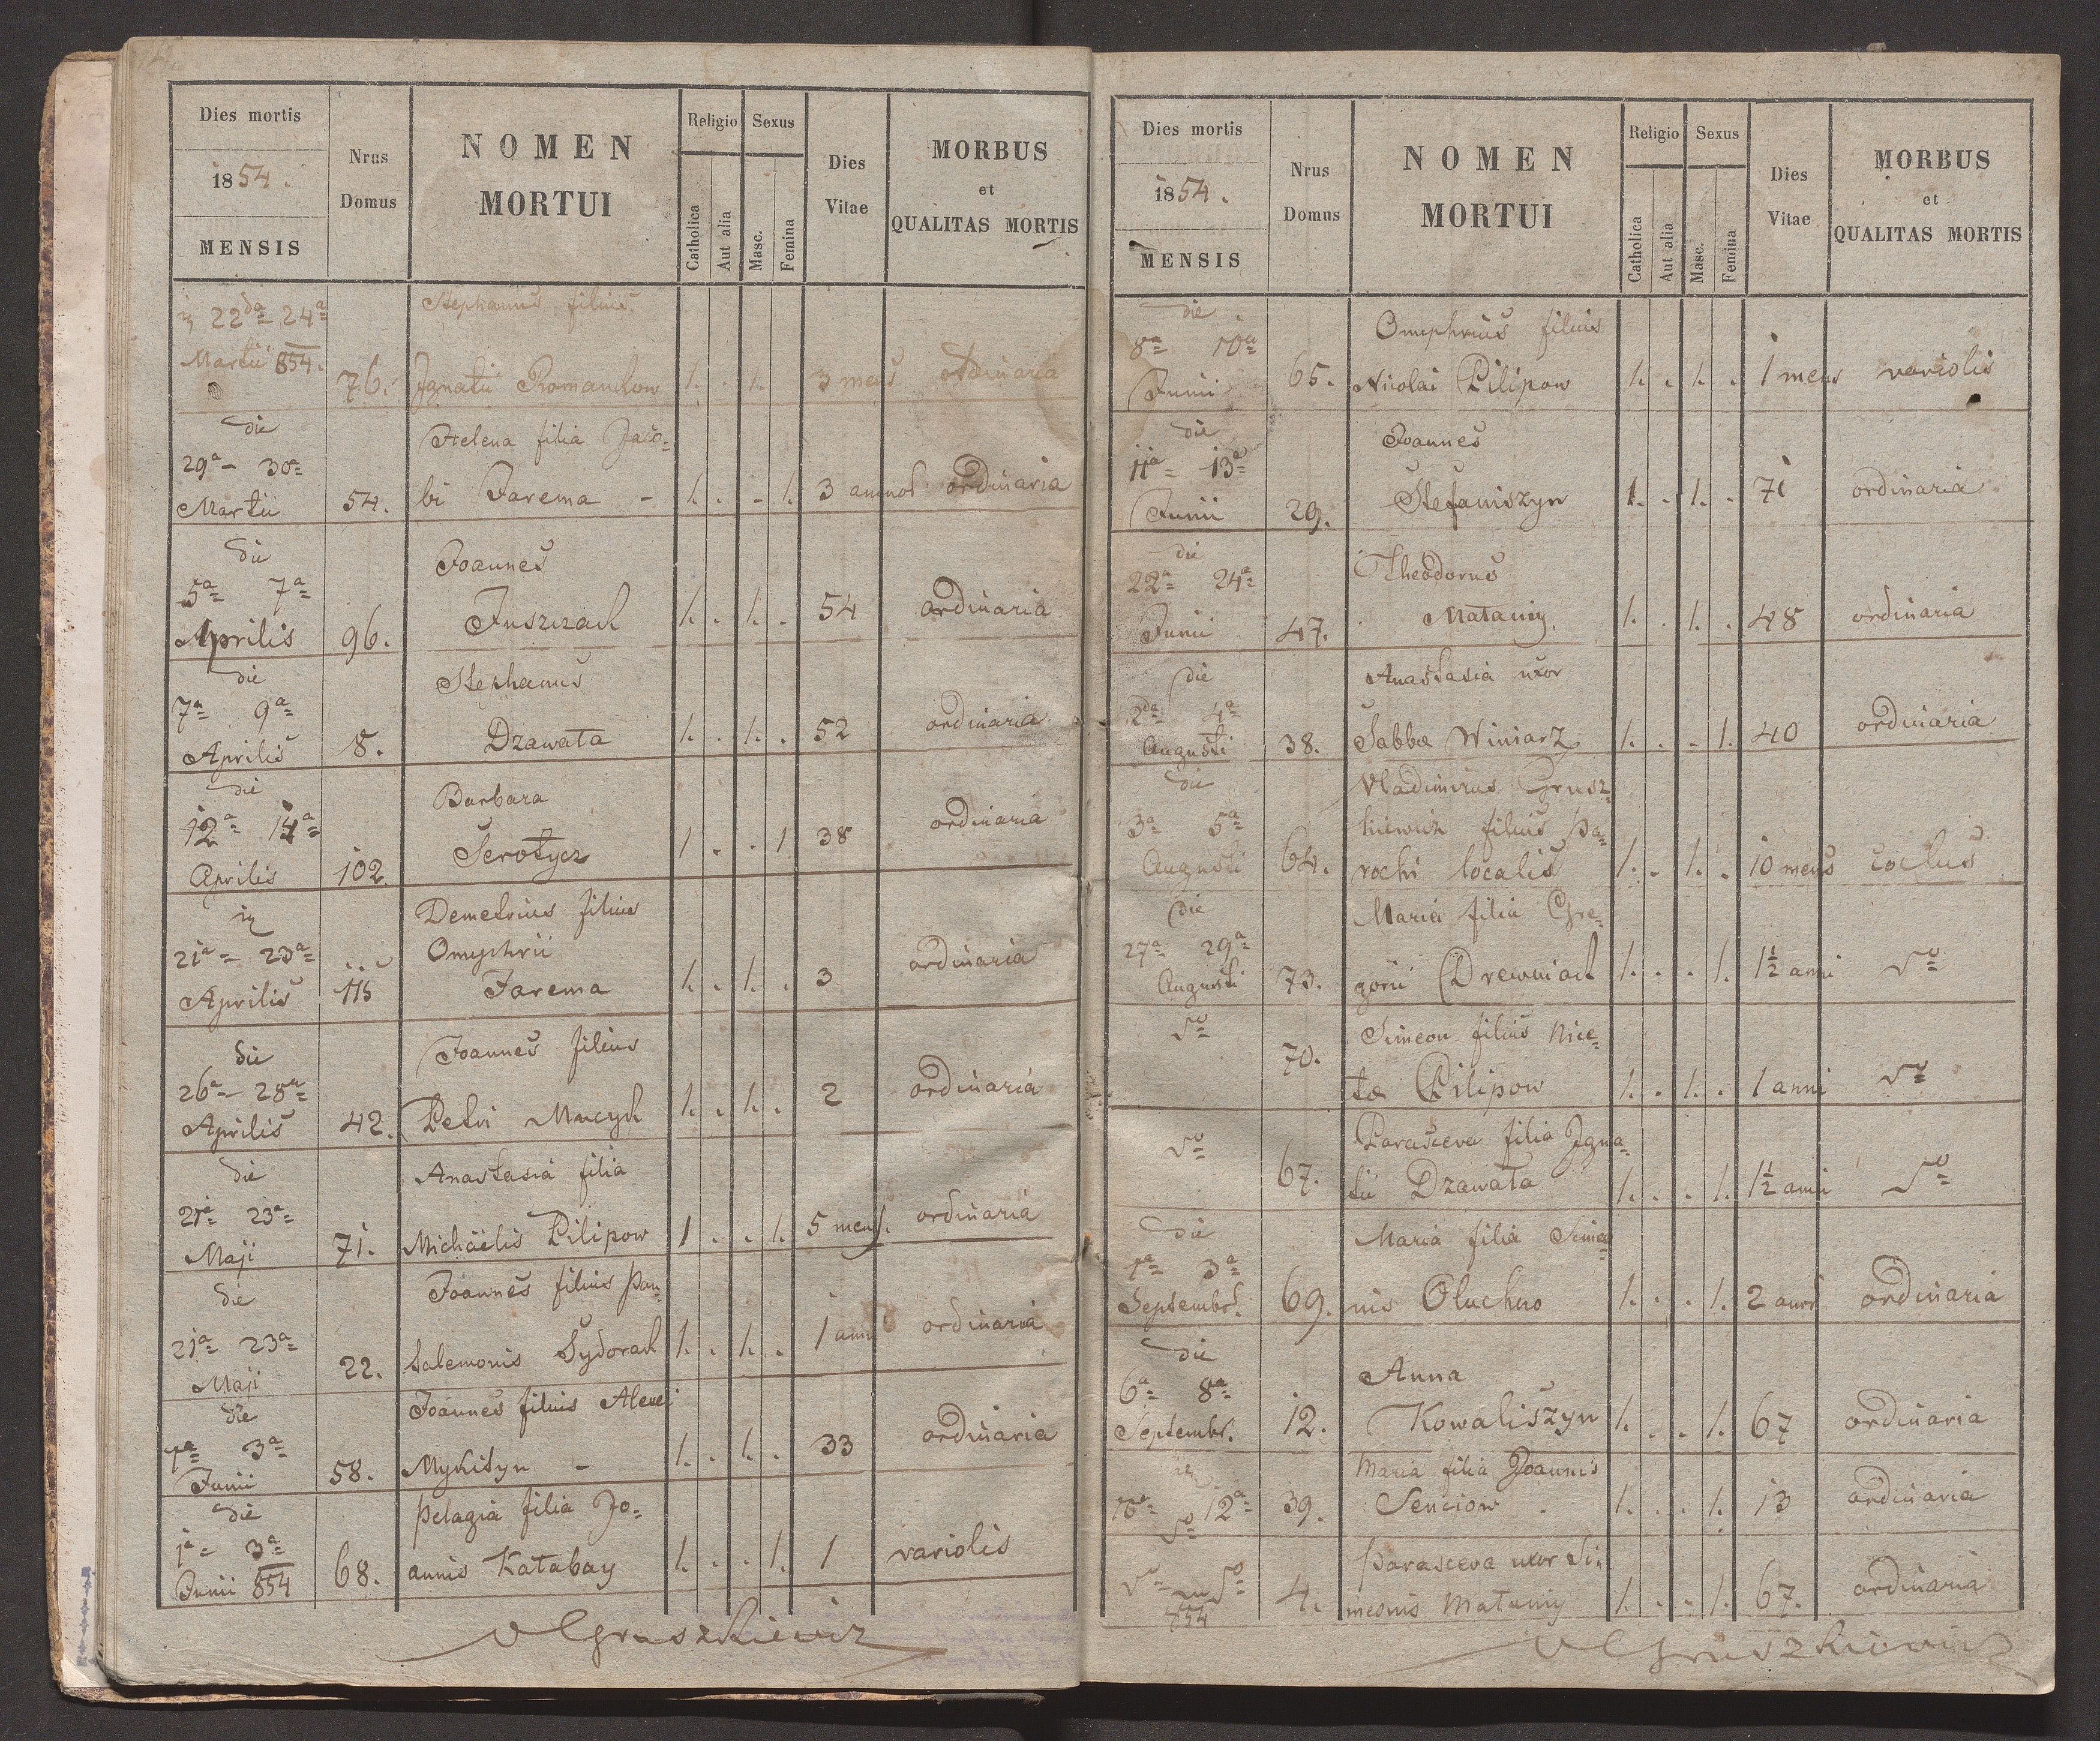 Dies mortis
1854.
MENSIS
Nrus
Domus
NOMEN
MORTUI
Religio
Catholica
Aut alia
Sexus
Masc.
Femina
Dies
Vitae
MORBUS
et
QUALITAS MORTIS
22da 24a
Martii 854.
76.
Stephanus filius
Ignatii Romanchow 1. . 1. 3 mens ordinaria
die
29a - 30a
Martii
54.
Helena filia Jaco=
bi Jarema - 1. . - 1. 3 annor ordinaria
die
5a 7a
Aprilis
96.
Joannes
Juszczach 1. . 1. . 54 ordinaria
die
7a 9a
Aprilis
8.
Stephanus
Dzawała 1. . 1. . 52 ordinaria
die
12a 14a
Aprilis
102.
Barbara
Serotycz 1 . . 1 38 ordinaria
21a - 23a
Aprilis
115
Demetrius filius
Omyphrii
Jarema 1. . 1. . 3 ordinaria
die
26a - 28a
Aprilis
42.
Joannes filius
Petri Mucych 1. . 1. . 2 ordinaria
die
21a 23a
Maji
71.
Anastasia filia
Michaëlis Pilipow 1 . . 1. 5 mens. ordinaria
die
21a 23a
Maji
22.
Joannes filius Pan=
talemonis Sydorach 1. . 1. . 1 anni ordinaria
die
1a 3a
Junii
58.
Joannes filius Alexei
Mykityn - 1. . 1. . 33 ordinaria
die
1a - 3a
Junii 854
68.
Pelagia filia Jo=
annis Katabay 1. . . 1. 1 variolis
VGruszkiewicz
Dies mortis
1854.
MENSIS
Nrus
Domus
NOMEN
MORTUI
Religio
Catholica
Aut alia
Sexus
Masc.
Femina
Dies
Vitae
MORBUS
et
QUALITAS MORTIS
die
8a 10a
Junii
65.
Omyphrius filius
Nicolai Pilipow 1. . 1. . 1 mens variolis
die
11a - 13a
Junii
29.
Joannes
Stefaniszyn 1. . 1. . 71 ordinaria
die
22a 24a
Junii
47.
Theodorus
Matanij 1. . 1. . 48 ordinaria
die
2da 4a
Augusti
38.
Anastasia uxor
Sabbæ Winiarz 1. . . 1. 40 ordinaria
die
3a 5a
Augusti
64.
Vladimirus Grusz=
kiewicz filius pa=
rochi localis 1. . 1. . 10 mens
die
27a 29a
Augusti
73.
Maria filia Gre=
gorii Drewniach 1. . . 1. 1½ anni do
do
70.
Simeon filius Nice=
tæ Pilipow 1. . 1. . 1 anni do
do
67.
Parasceva filia Igna=
tii Dzawała 1. . . 1. 1½ anni do
die
1a 3a
Septembr.
69.
Maria filia Simeo=
nis Oluchno 1. . . 1. 2 anor ordinaria
die
6a 8a
Septembr.
12.
Anna
Kowaliszyn 1. . . 1. 67 ordinaria
10a 12a
do
39.
Maria filia Joannis
Senciow . 1. . . 1. 13 ordinaria
do do
854
4.
Parasceva uxor Si=
meonis Matanij 1. . . 1. 67. ordinaria
VGruszkiewicz